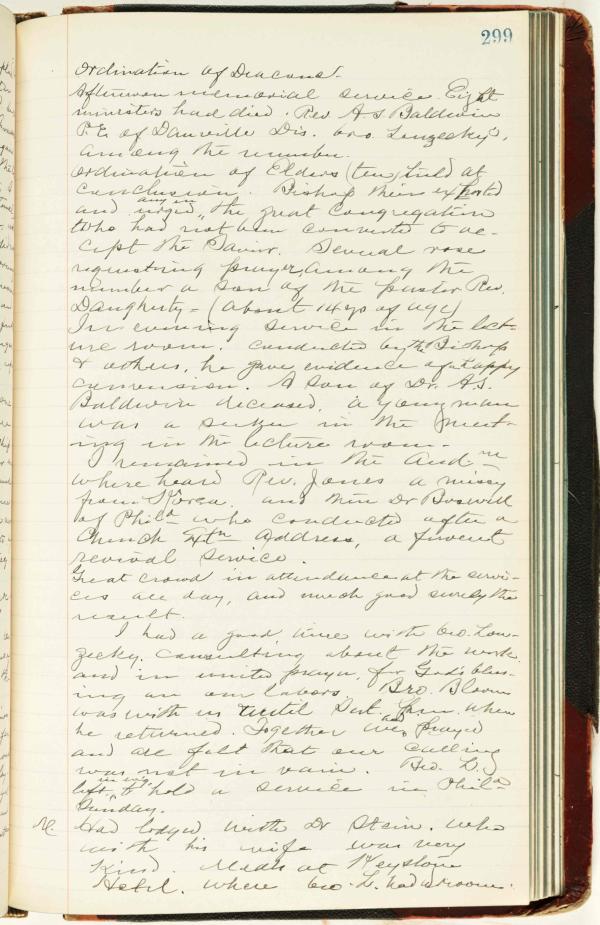 299
Ordination of Deacons.
Afternoon memorial service. Eight
ministers had died. Rev A S Baldwin
P.E. of Danville Dis. bro.
among the number.
Ordination of Elders (ten) held at
conclusion. Bishop then exhorted
and urged any in the great congregation
who had not been converted to ac-
cept the Savior. Several rose
requesting prayer, among the
number a son of the pastor Rev.
Daugherty - (about 14 yrs of age)
In evening service in the lect-
ure room. conducted by the Bishop
& others, he gave evidence of a happy
conversion. A son of Dr. A.S.
Baldwin deceased, a young man
was a seeker in the meet-
ing in the lecture room.
I remained in the Aud.
where heard Rev. Jones a missy
from Korea. and then Dr Boswell
of Phila who conducted after a
Church Extn Address, a fervent
revival service.
Great crowd in attendance at the servi-
ces all day, and much good surely the
result.
I had a good time with bro.
consulting about the work.
and in united prayer for God's bless-
ing on our labors. Bro. Bloom
was with us until Sat. p.m. when
he returned. Together we had prayed
and all felt that our calling
was not in vain. Bro. L.
left in eng. to hold a service in Phila
Sunday.
Had lodged with Dr Stein. who
with his wife was very
kind. Meals at Keystone
Hotel. where bro. L. had a room.